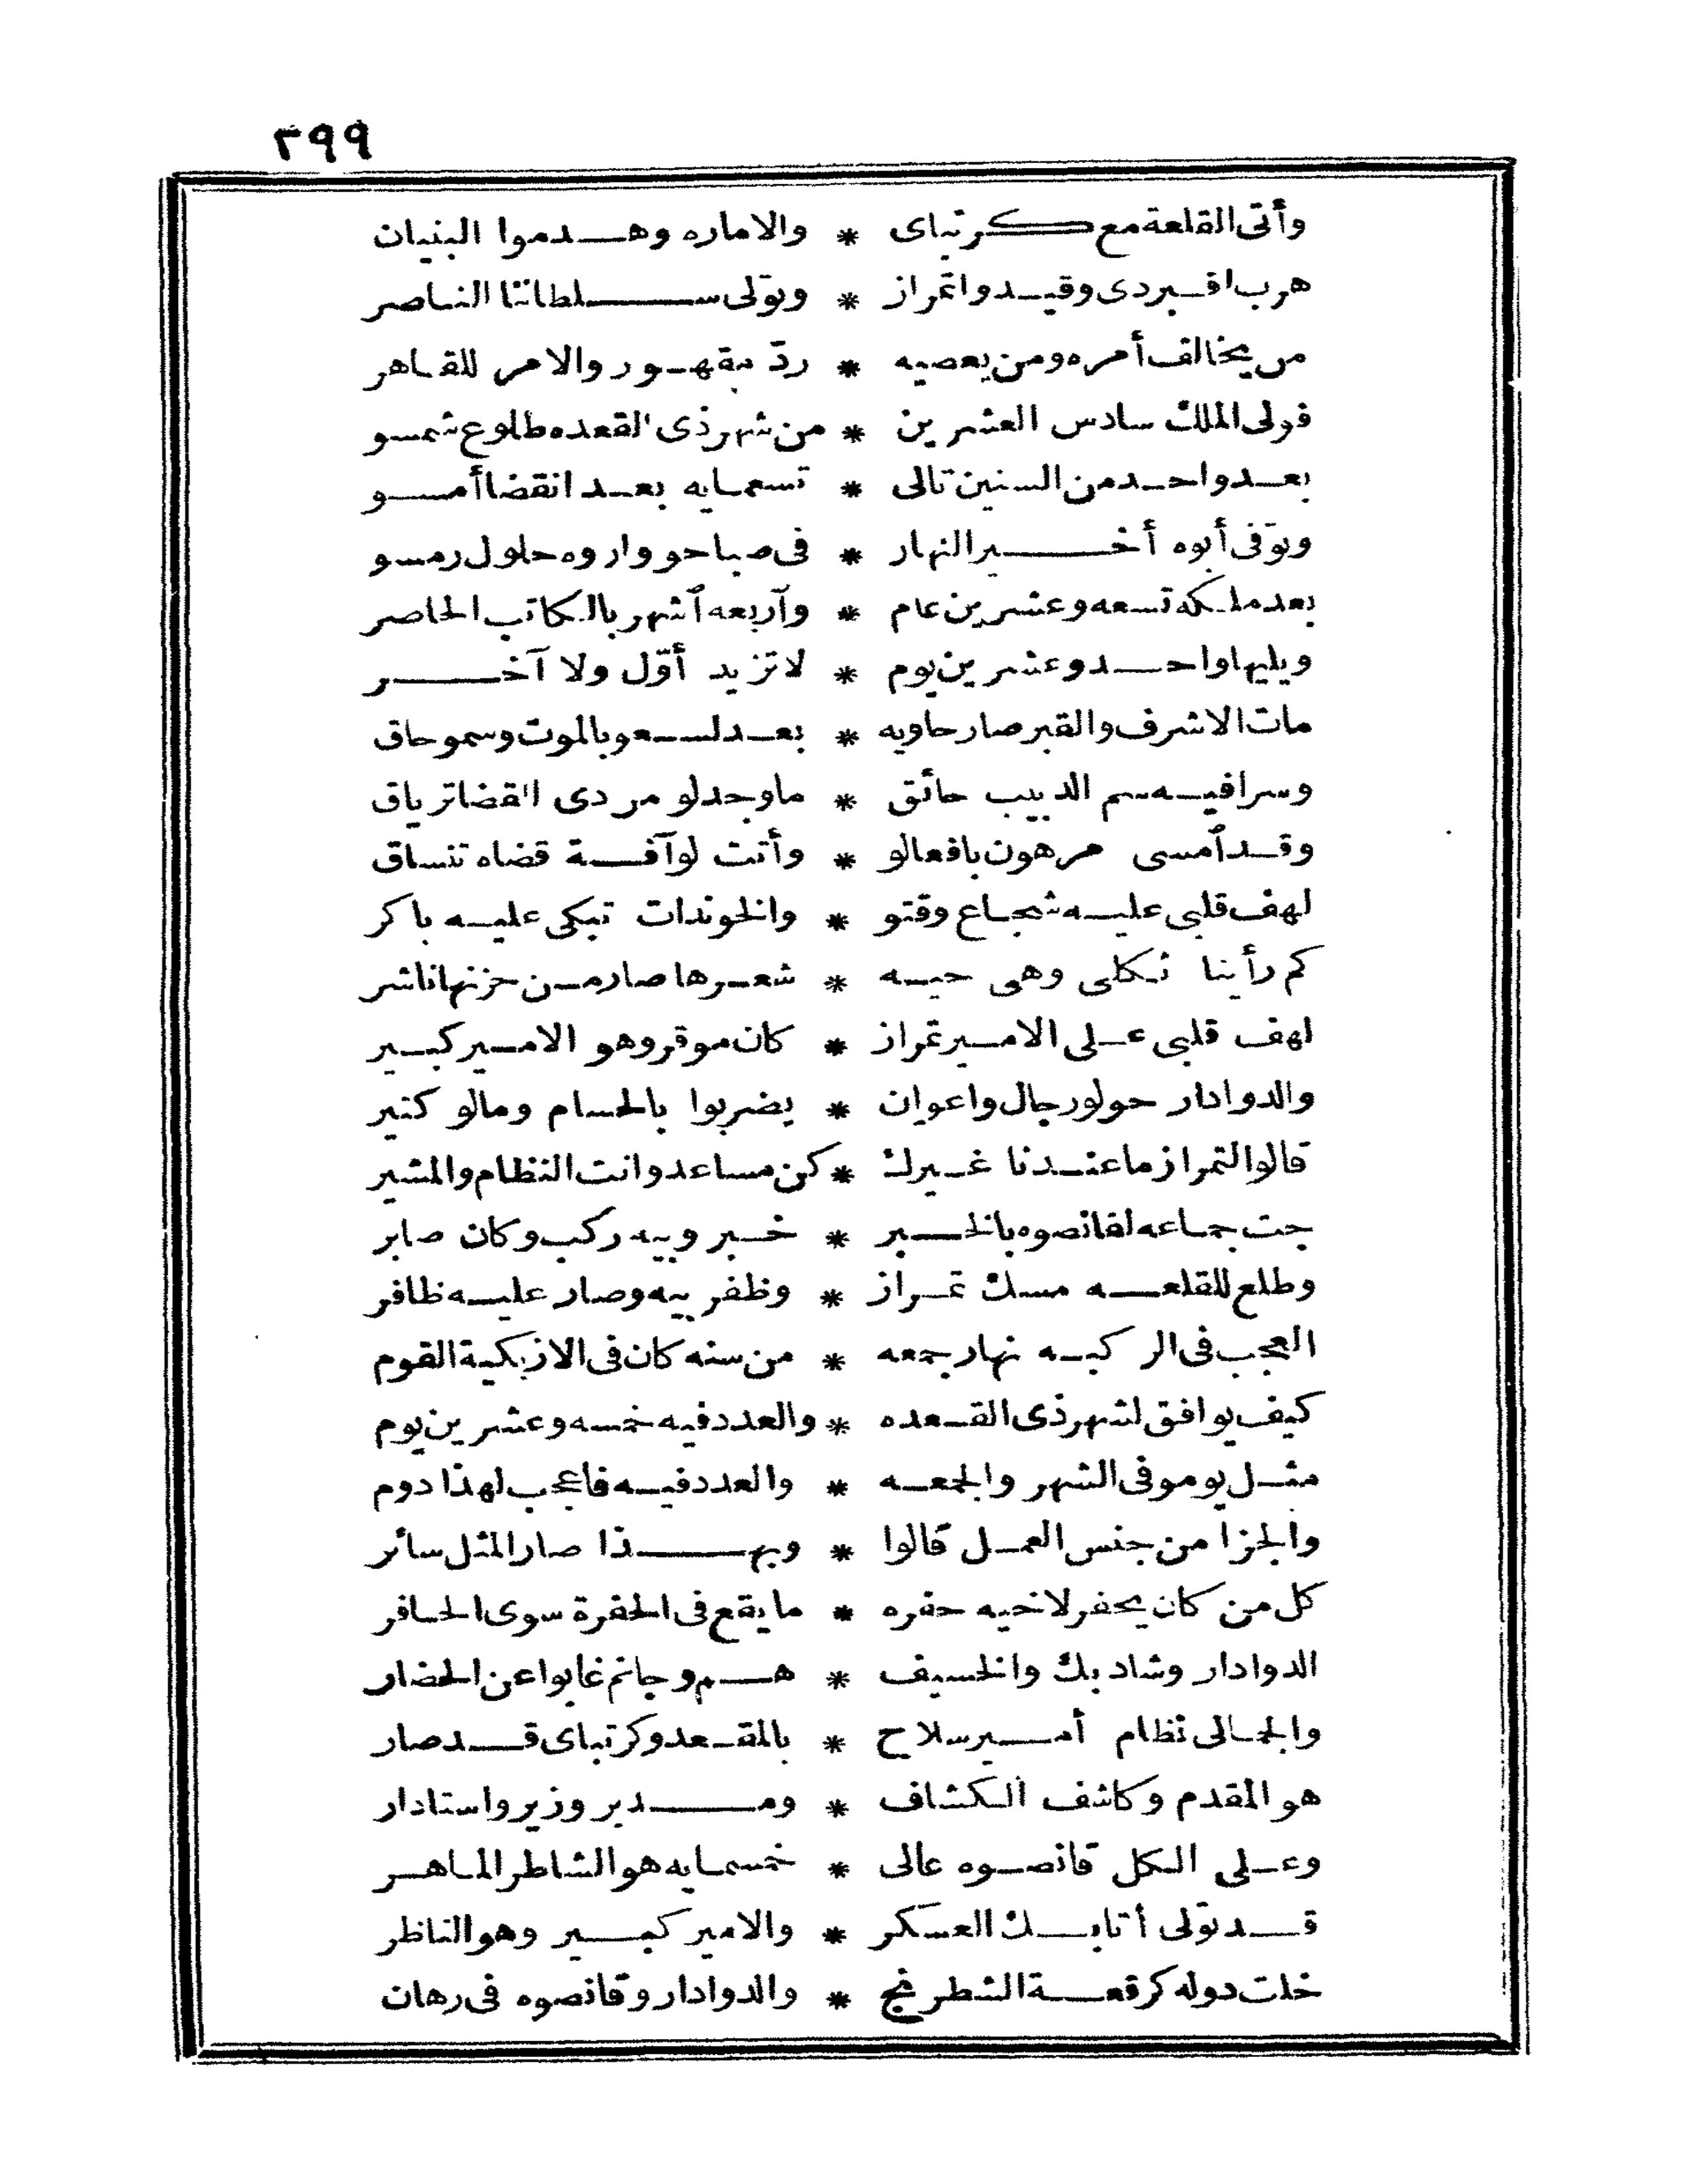 ٢٩٩
وأتى القلعة مع كرتباى * والاماره وهدموا البنيان
هرب اقبردى وقيدوا تمراز * وتولى سلطاننا الناصر
من يخالف أمره ومن يعصيه * ردّ مقهور والامر للقاهر
فولى الملك سادس العشرين * من شهر ذى القعده طلوع شمسو
بعد واحد من السنين تالى * تسعمايه بعد انقضا أمسو
وتوفى أبوه أخير النهار * فى صباحو واروه حلول رمسو
بعد ملكه تسعه وعشرين عام * وأربعه أشهر بالكاتب الحاصر
ويليها واحد وعشرين يوم * لا تزيد أوّل ولا آخر
مات الاشرف والقبر صار حاويه * بعد لسعو بالموت وسمو حاق
وسرا فيه سم الدبيب حائق * ما وجد لو من دى القضا ترياق
وقد أمسى مرهون بافعالو * وأتت لو آفة قضاه تنساق
لهف قلبى عليه شجاع وقتو * والخوندات تبكى عليه باكر
كم رأينا ثكلى وهى حيه * شعرها صار من حزنها ناشر
لهف قلبى على الامير تمراز * كان موقر وهو الامير كبير
والدوادار حولو رجال واعوان * يضربوا بالحسام ومالو كتير
قالوا لتمراز ما عندنا غيرك * كن مساعد وانت النظام والمشير
جت جماعه لقانصوه بالخبر * خبر وبيه ركب وكان صابر
وطلع للقلعه مسك تمراز * وظفر بيه وصار عليه ظافر
العجب فى الركبه نهار جمعه * من سنه كان فى الازبكية القوم
كيف يوافق لشهر ذى القعده * والعدد فيه خمسه وعشرين يوم
مثل يومو فى الشهر والجمعه * والعدد فيه فاعجب لهذا دوم
والجزا من جنس العمل قالوا * وبهذا صار المثل سائر
كل من كان يحفر لاخيه حفره * ما يقع فى الحفرة سوى الحافر
الدوادار وشاد بك والخسيف * هم وجانم غابوا عن الحضار
والجمالى نظام أمير سلاح * بالمقعد وكرتباى قد صار
هو المقدم وكاشف الكشاف * ومدبر وزير واستادار
وعلى الكل قانصوه عالى * خمسمايه هو الشاطر الماهر
قد تولى أتابك العسكر * والامير كبير وهو الناظر
خلت دوله كرقعة الشطرنج * والدوادار وقانصوه فى رهان